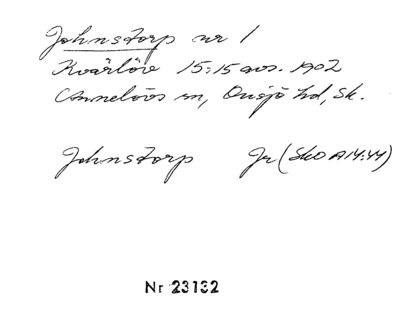 Johnstorp nr 1
Kvärlöv 15:15 avs. 1902
Annelövs sn, Onsjö hd, Sk.
Johnstorp Jr (SkO A14:44)
Nr 23132